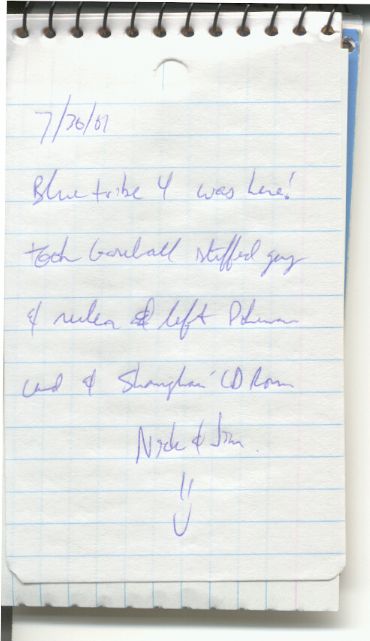 7/30/01
Blue tribe 4 was here!
took baseball stuffed guy
& left Pokemon
card & Shanghai CD Rom
& Jim